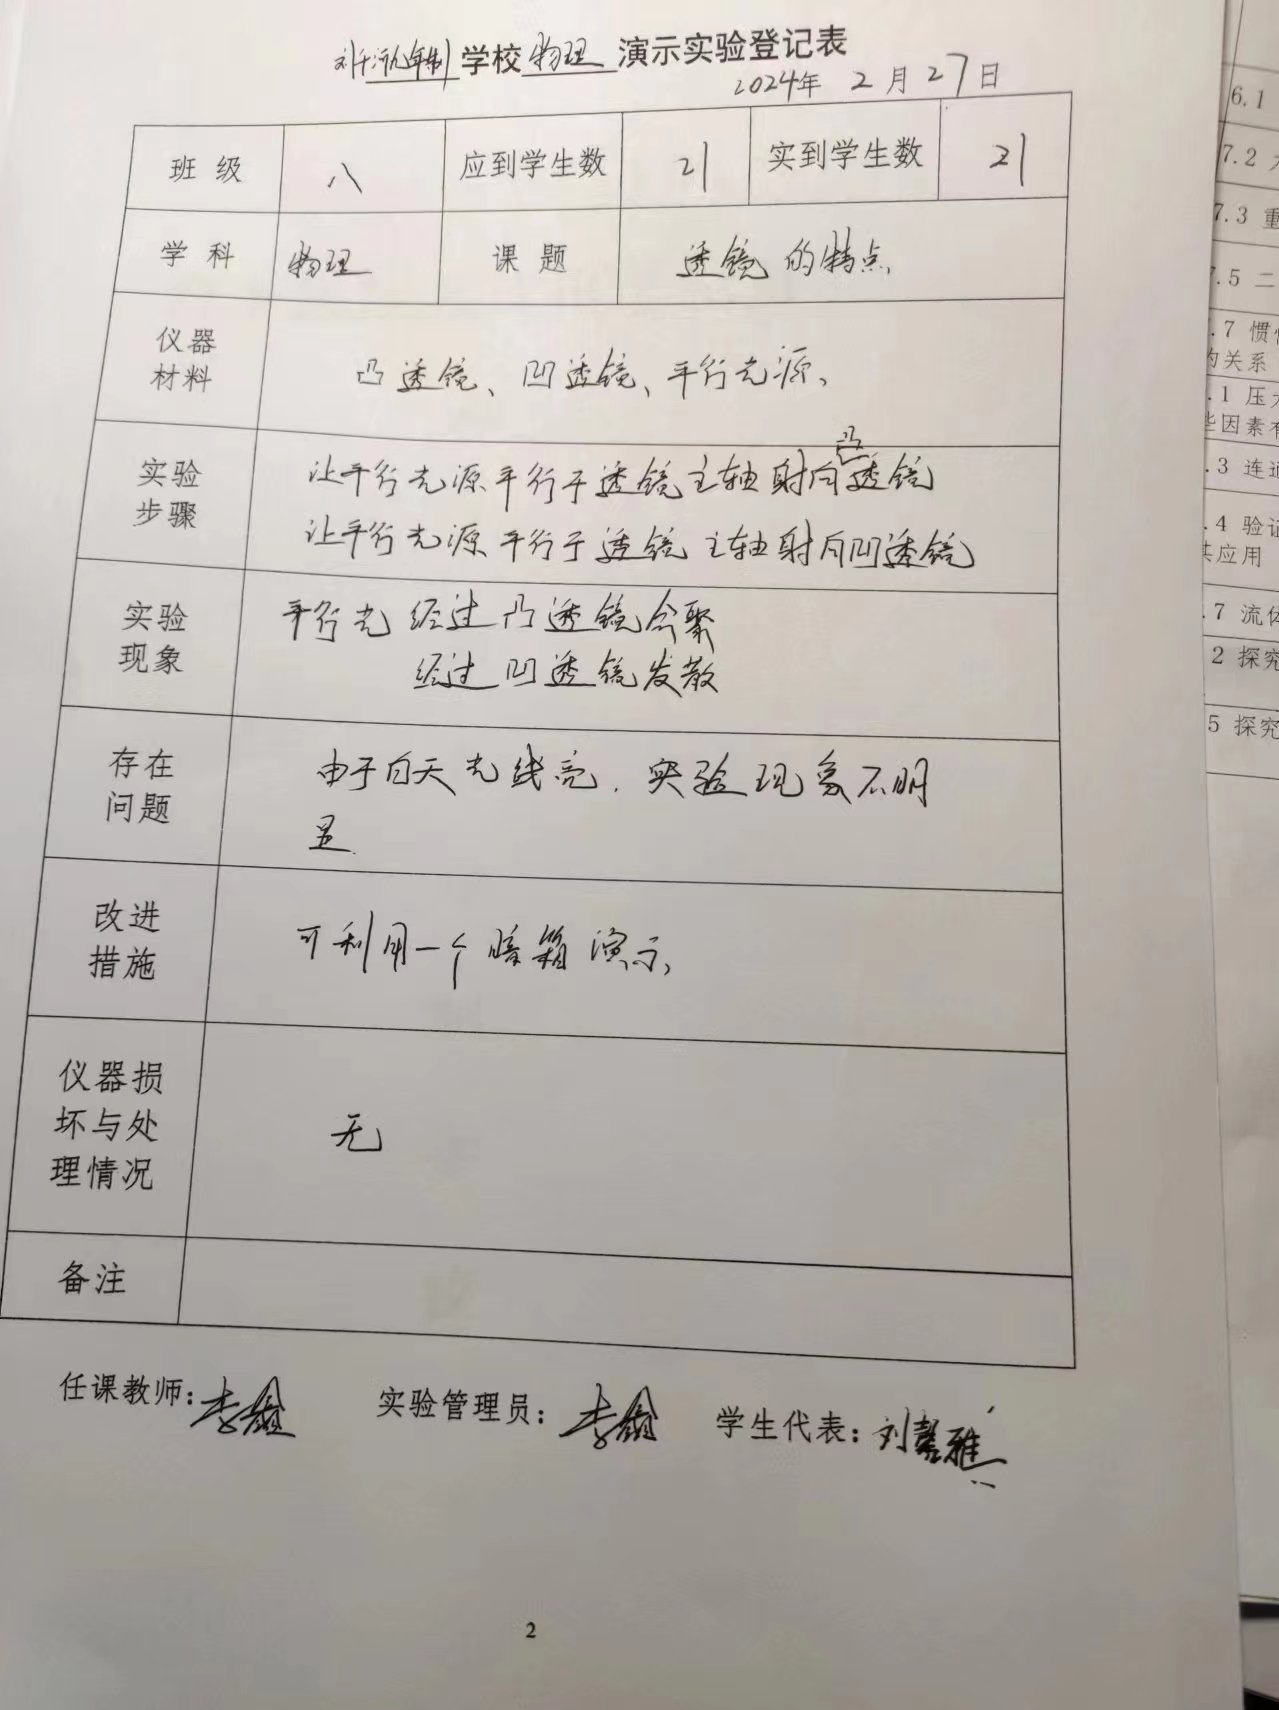 学校 物理 演示实验登记表
2024年 2 月 27 日
班 级 八 应到学生数 21 实到学生数 21
学 科 物理 课 题 透镜的特点
仪器
材料
凸透镜、凹透镜、平行光源、
实验
步骤
让平行光源平行于透镜主轴射向凸透镜
让平行光源平行于透镜主轴射向凹透镜
实验
现象
平行光 经过凸透镜会聚
经过凹透镜发散
存在
问题
由于白天光线亮．实验现象不明
显
改进
措施
可利用一个暗箱演示、
仪器损
坏与处
理情况
无
备注
任课教师：李鑫 实验管理员：李鑫 学生代表：刘馨雅
2
6.1
7.2
7.3 重
7.5 二
.7 惯
的关系
.1 压
些因素有
.3 连通
.4 验证
其应用
.7 流体
2 探究
5 探究